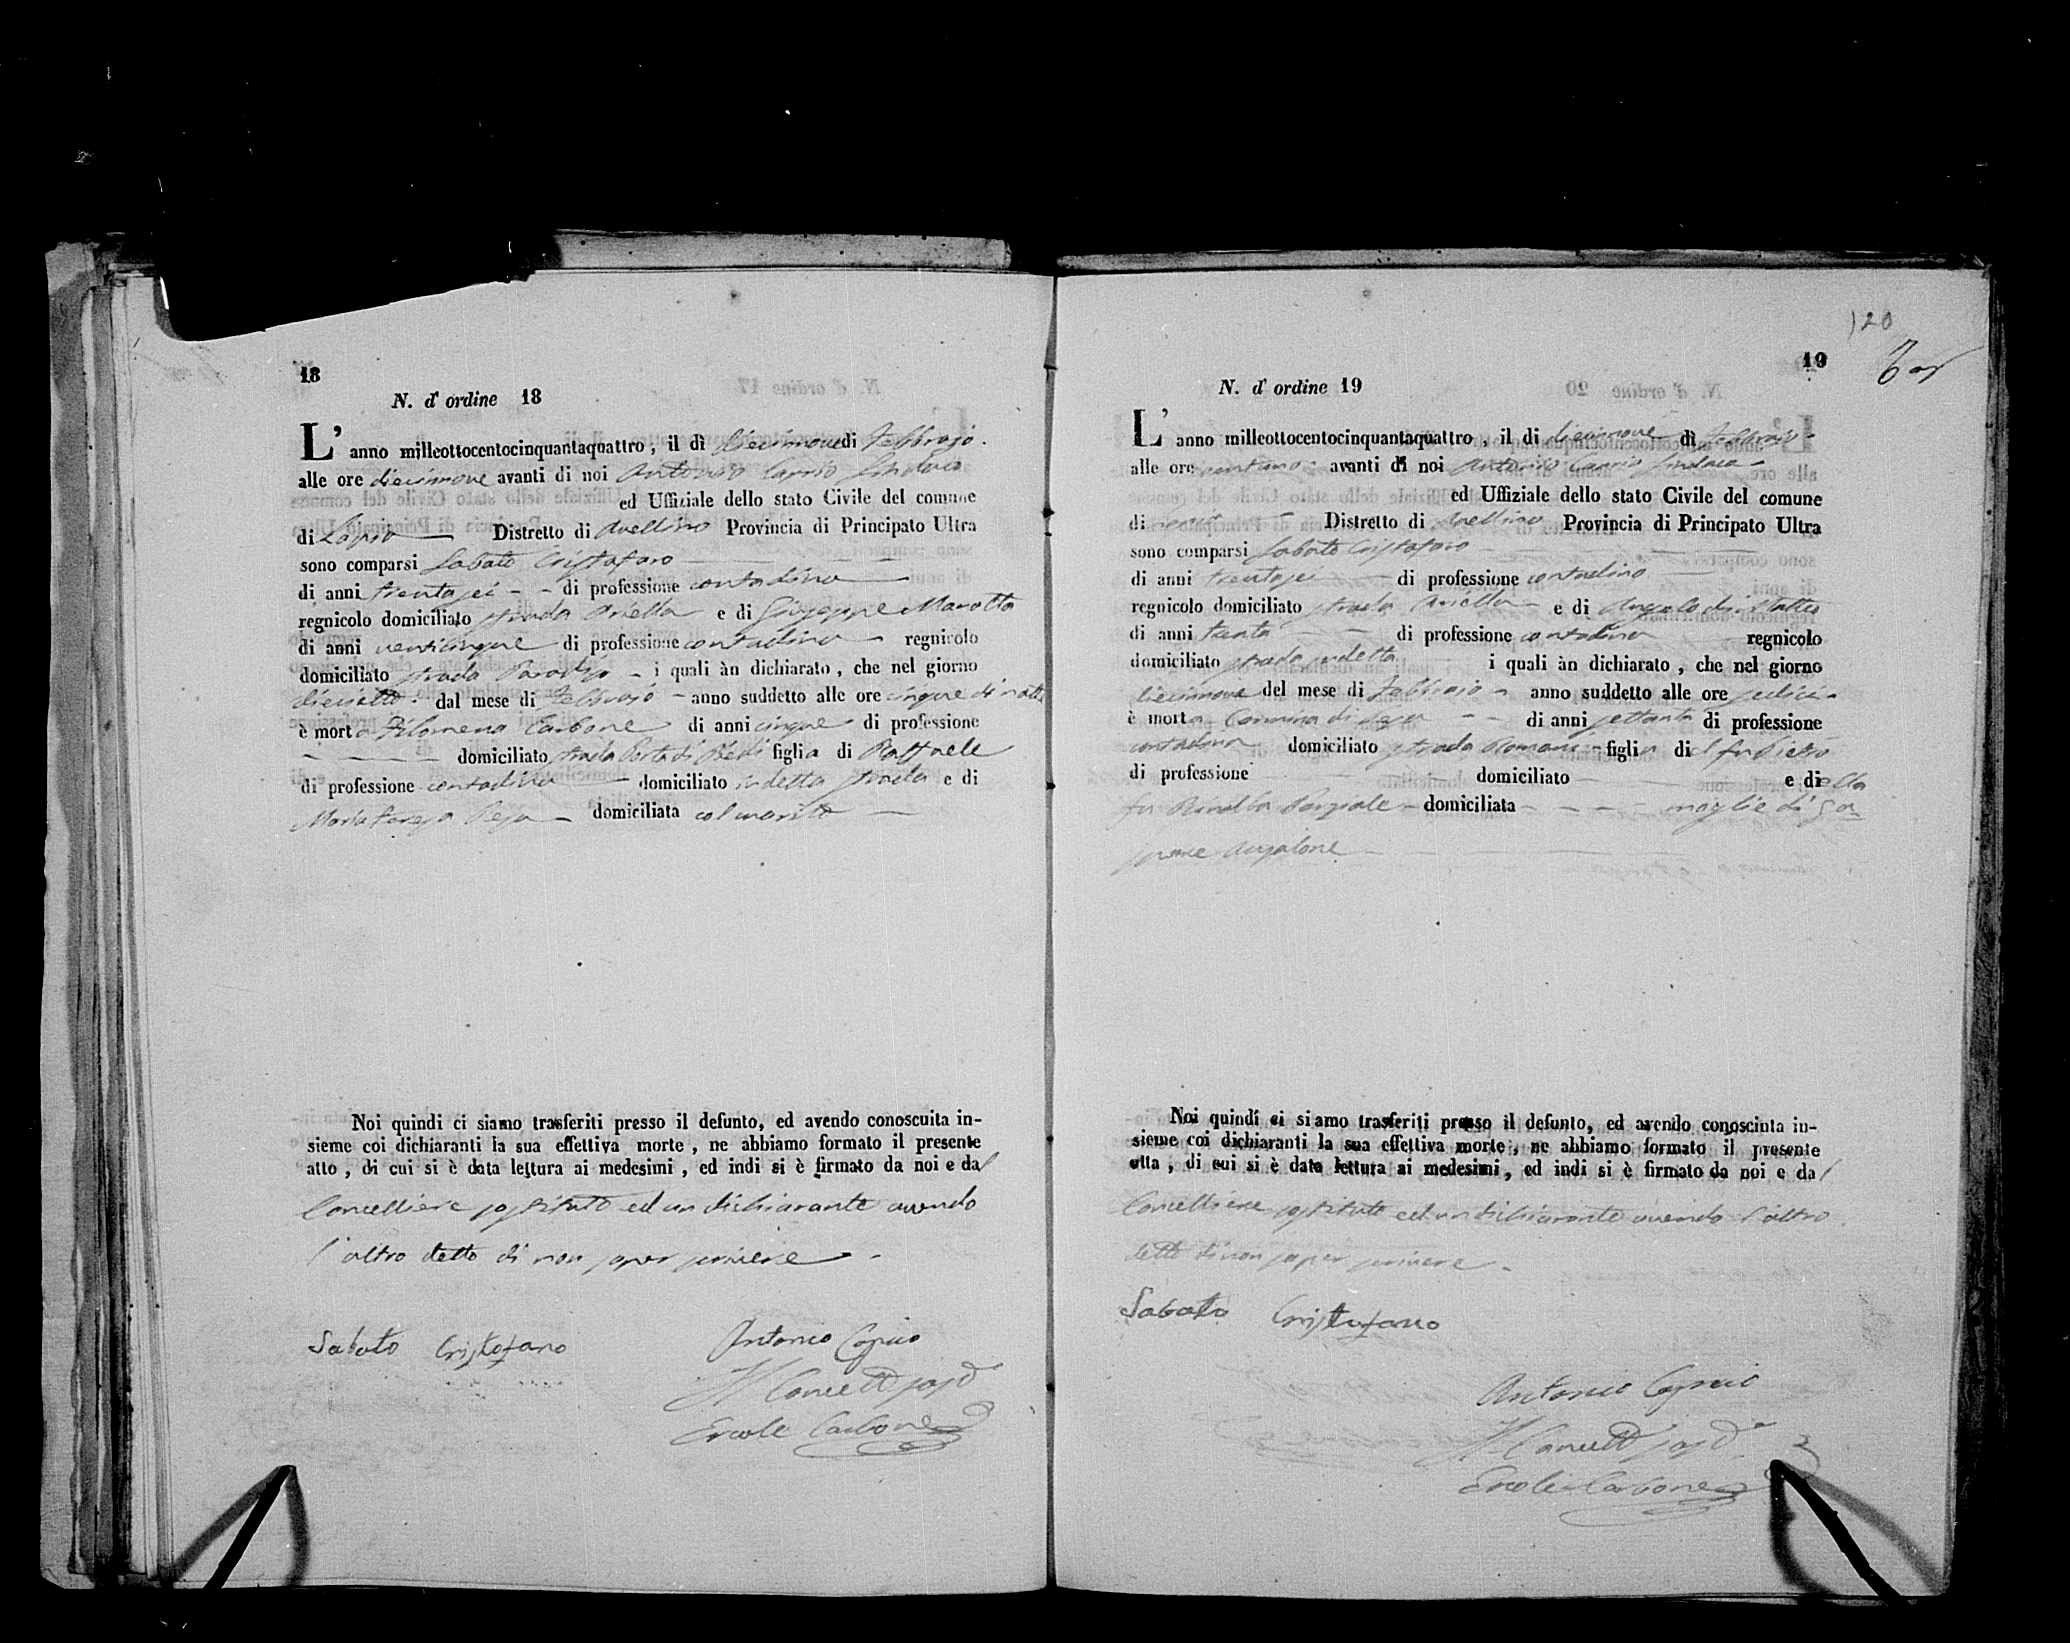 18
N. d' ordine 18
L' anno milleottocentocinquantaquattro, il dì diecinnove di Febbrajo.
alle ore diecinnove avanti di noi Antonio Caprio Sindaco
ed Uffiziale dello stato Civile del comune
di Lapio Distretto di Avellino Provincia di Principato Ultra
sono comparsi Sabato Cristofaro
di anni trentasei di professione contadino
regnicolo domiciliato strada Ariella e di Giuseppe Marotta
di anni venticinque di professione contadino regnicolo
domiciliato strada i quali àn dichiarato, che nel giorno
dieciotto dal mese di Febbrajo anno suddetto alle ore cinque di notte
è morta Filomena Carbone di anni cinque di professione
domiciliato strada Porta di figlia di Raffaele
di professione contadino domiciliato in detta strada e di
Maria Teresa domiciliata col marito
Noi quindi ci siamo trasferiti presso il defunto, ed avendo conoscuita in-
sieme coi dichiaranti la sua effettiva morte, ne abbiamo formato il presente
atto, di cui si è data lettura ai medesimi, ed indi si è firmato da noi e dal
Cancelliere sostituto ed un dichiarante avendo
l'altro detto di non saper scrivere
Sabato Cristofaro
Antonio Caprio
Il Cancell sost
Ercole Carbone
120
19
N. d' ordine 19
L' anno milleottocentocinquantaquattro, il dì diecinnove di Febbrajo
alle ore ventuno avanti di noi Antonio Caprio Sindaco
ed Uffiziale dello stato Civile del comune
di Lapio Distretto di Avellino Provincia di Principato Ultra
sono comparsi Sabato Cristofaro
di anni trentasei di professione contadino
regnicolo domiciliato strada Ariella e di Angelo di Matteo
di anni trenta di professione contadino regnicolo
domiciliato strada sudetta i quali àn dichiarato, che nel giorno
diecinnove del mese di Febbrajo anno suddetto alle ore sedici
è morta Carmina di anni settanta di professione
contadina domiciliato strada Romani figlia del fu Pietro
di professione domiciliato e della
fu domiciliata moglie di Ga
Noi quindi ci siamo trasferiti presso il defunto, ed avendo conosciuta in-
sieme coi dichiaranti la sua effettiva morte, ne abbiamo formato il presente
atta, di cui si è data lettura ai medesimi, ed indi si è firmato da noi e dal
Cancelliere sostituto ed un dichiarante avendo l'altro
detto di non saper scrivere
Sabato Cristofaro
Antonio Caprio
Il Cancell sost
Ercole Carbone